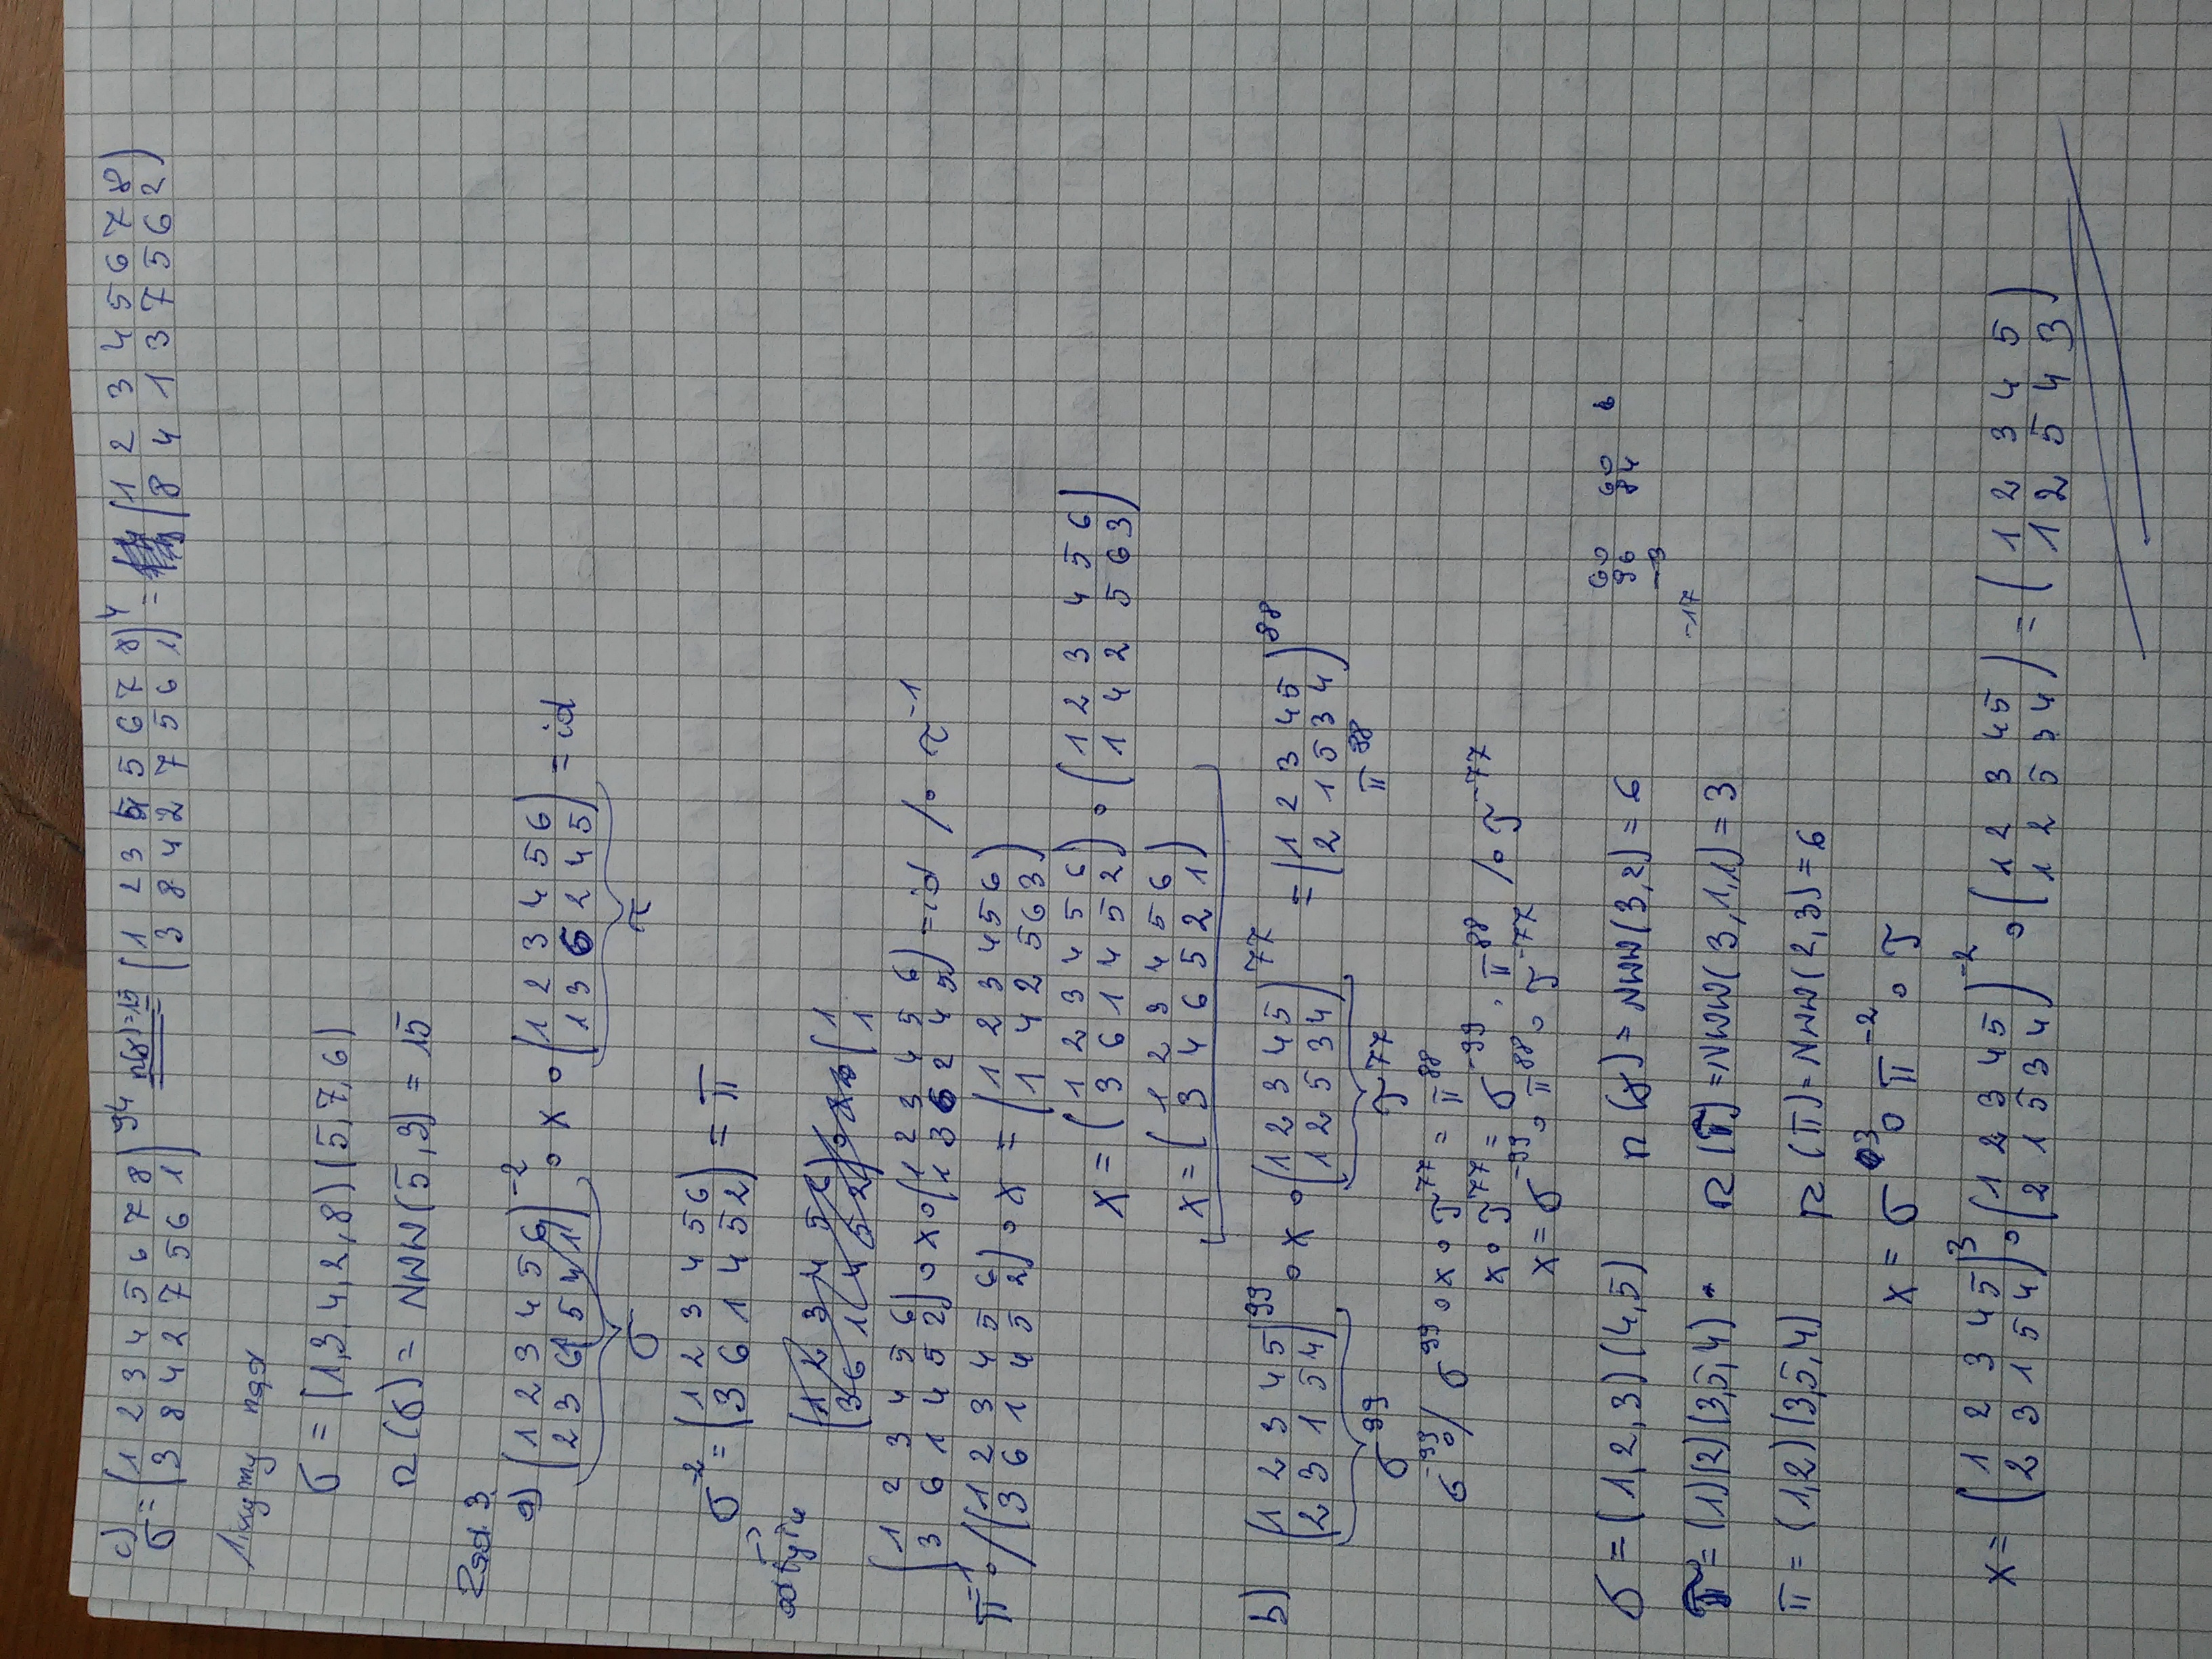 c)
σ = (1 2 3 4 5 6 7 8 / 3 8 4 2 7 5 6 1)^94 r(σ)=15 = (1 2 3 4 5 6 7 8 / 3 8 4 2 7 5 6 1)^4 = (1 2 3 4 5 6 7 8 / 8 4 1 3 7 5 6 2)
rząd
σ = (1,3,4,2,8)(5,7,6)
r(σ) = NWW(5,3) = 15
Zad. 3.
a) (1 2 3 4 5 6 / 2 3 6 5 4 1)^-2 ∘ x ∘ (1 2 3 4 5 6 / 1 3 6 2 4 5) = id
σ τ
σ^-2 = (1 2 3 4 5 6 / 3 6 1 4 5 2) = π
(1 2 3 4 5 6 / 3 6 1 4 5 2) ∘ x ∘ (1 / 1
(1 2 3 4 5 6 / 3 6 1 4 5 2) ∘ x ∘ (1 2 3 4 5 6 / 1 3 6 2 4 5) = id /∘ τ^-1
π^-1 ∘/ (1 2 3 4 5 6 / 3 6 1 4 5 2) ∘ x = (1 2 3 4 5 6 / 1 4 2 5 6 3)
x = (1 2 3 4 5 6 / 3 6 1 4 5 2) ∘ (1 2 3 4 5 6 / 1 4 2 5 6 3)
x = (1 2 3 4 5 6 / 3 4 6 5 2 1)
b) (1 2 3 4 5 / 2 3 1 5 4)^99 ∘ x ∘ (1 2 3 4 5 / 1 2 5 3 4)^77 = (1 2 3 4 5 / 2 1 5 3 4)^88
σ^99 τ^77 π^88
σ^-99 ∘/ σ^99 ∘ x ∘ τ^77 = π^88
x ∘ τ^77 = σ^-99 ∘ π^88 /∘ τ^-77
x = σ^-99 ∘ π^88 ∘ τ^-77
σ = (1,2,3)(4,5) r(σ) = NWW(3,2) = 6
60 60 6
96 84
-3
-17
τ = (1)(2)(3,5,4) r(τ) = NWW(3,1,1) = 3
π = (1,2)(3,5,4) r(π) = NWW(2,3) = 6
x = σ^3 ∘ π^-2 ∘ τ
x = (1 2 3 4 5 / 2 3 1 5 4)^3 ∘ (1 2 3 4 5 / 2 1 5 3 4)^-2 ∘ (1 2 3 4 5 / 1 2 5 3 4) = (1 2 3 4 5 / 1 2 5 4 3)